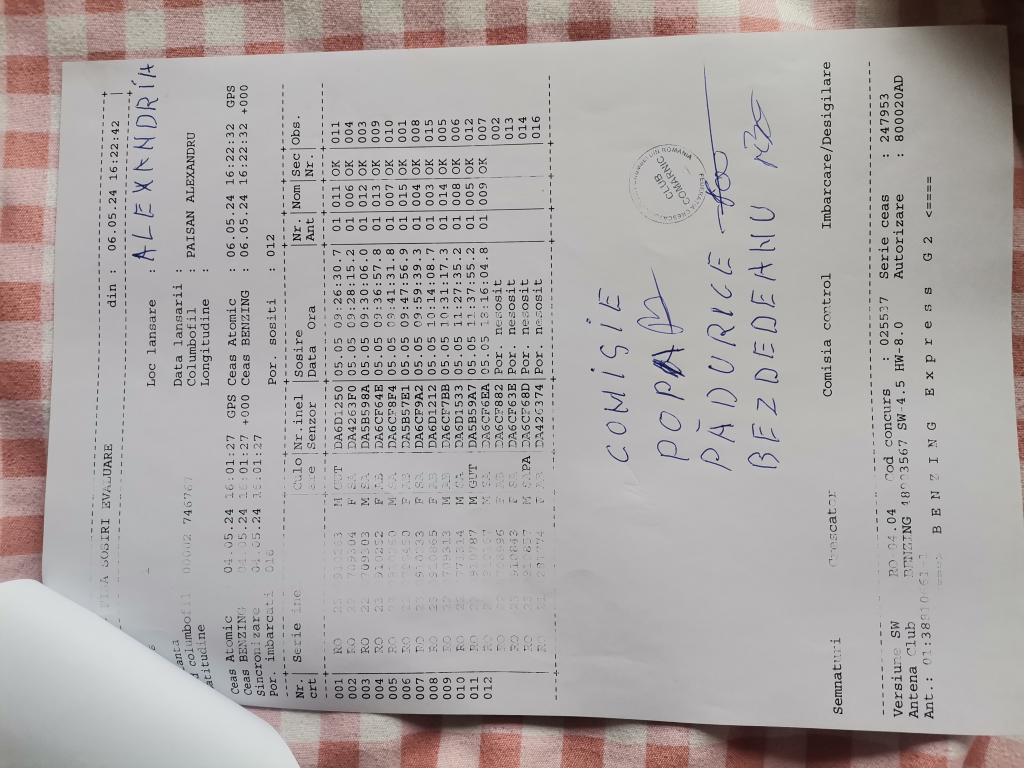 FISA SOSIRI EVALUARE din : 06.05.24 16:22:42
Loc lansare : ALEXANDRIA
Data lansarii :
columbofil 746767 Columbofil : PAISAN ALEXANDRU
atitudine Longitudine :
Ceas Atomic 04.05.24 16:01:27 GPS Ceas Atomic : 06.05.24 16:22:32 GPS
Ceas BENZING 04.05.24 16:01:27 +000 Ceas BENZING : 06.05.24 16:22:32 +000
Sincronizare 04.05.24 16:01:27
Por. imbarcati 016 Por. sositi : 012
Nr. Serie inel Culo Nr.inel Sosire Nr. Nom Sec Obs.
crt are Senzor Data Ora Ant Nr.
001 RO 23 M GUT DA6D1250 05.05 09:26:30.7 01 011 OK 011
002 RO 22 709304 F SA DA4263F0 05.05 09:28:15.2 01 006 OK 004
003 RO 22 709303 M SA DA5B598A 05.05 09:31:06.0 01 012 OK 003
004 RO 23 910232 F AB DA6CF64E 05.05 09:36:57.8 01 013 OK 009
005 RO M DA6CF8F4 05.05 09:41:31.8 01 007 OK 010
006 RO F DA5B57E1 05.05 09:47:56.9 01 015 OK 001
007 RO 23 F SA DA6CF9A2 05.05 09:59:39.3 01 004 OK 008
008 RO 23 F DA6D1212 05.05 10:14:08.7 01 003 OK 015
009 RO 22 709313 M DA6CF7BB 05.05 10:31:17.3 01 014 OK 005
010 RO 22 771314 M 05.05 11:27:35.2 01 008 OK 006
011 RO 23 910787 M GUT DA5B59A7 05.05 11:37:55.2 01 005 OK 012
012 RO DA6CF6EA 05.05 13:16:04.8 01 009 OK 007
RO DA6CF882 Por. nesosit 002
RO 23 910843 F SA DA6CF63E Por. nesosit 013
RO 23 M SAPA Por. nesosit 014
RO F DA426374 Por. nesosit 016
COMISIE
POPA
PĂDURICE
BEZDEDEANU
CLUB
COMARNIC
Semnaturi Crescator Comisia control Imbarcare/Desigilare
Versiune SW RO 04.04 Cod concurs : 025537 Serie ceas : 247953
Antena Club BENZING SW-4.5 HW-8.0 Autorizare : 800020AD
Ant.:
BENZING Express G2 <====